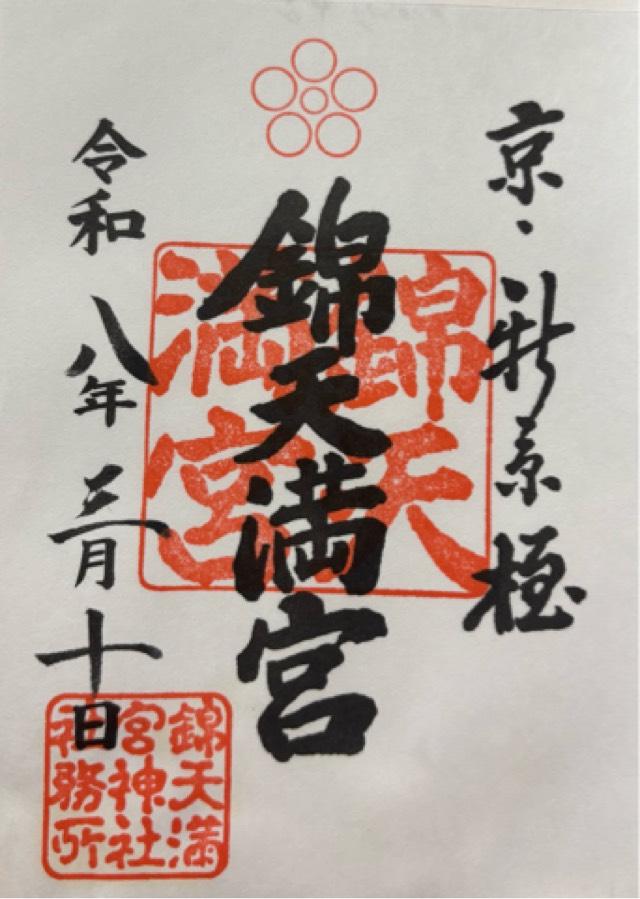 京・新京極
錦天満宮
錦天
満宮
令和八年三月十日
錦天満
宮神社
社務所